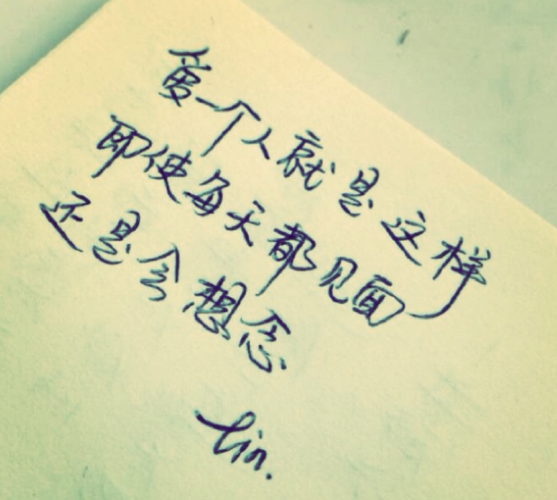 爱一个人就是这样
即使每天都见面
还是会想念
lin.